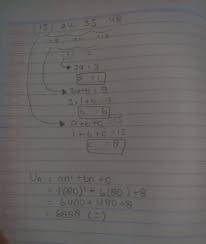 15 24 35 48
9 11 13
2 2
2a = 2
a = 1
3a+b = 9
3.1+b = 9
b = 6
a+b+c = 15
1+6+c = 15
c = 8
Un = an²+bn+c
= 1(80)²+6(80)+8
= 6400+480+8
= 6888 (=)